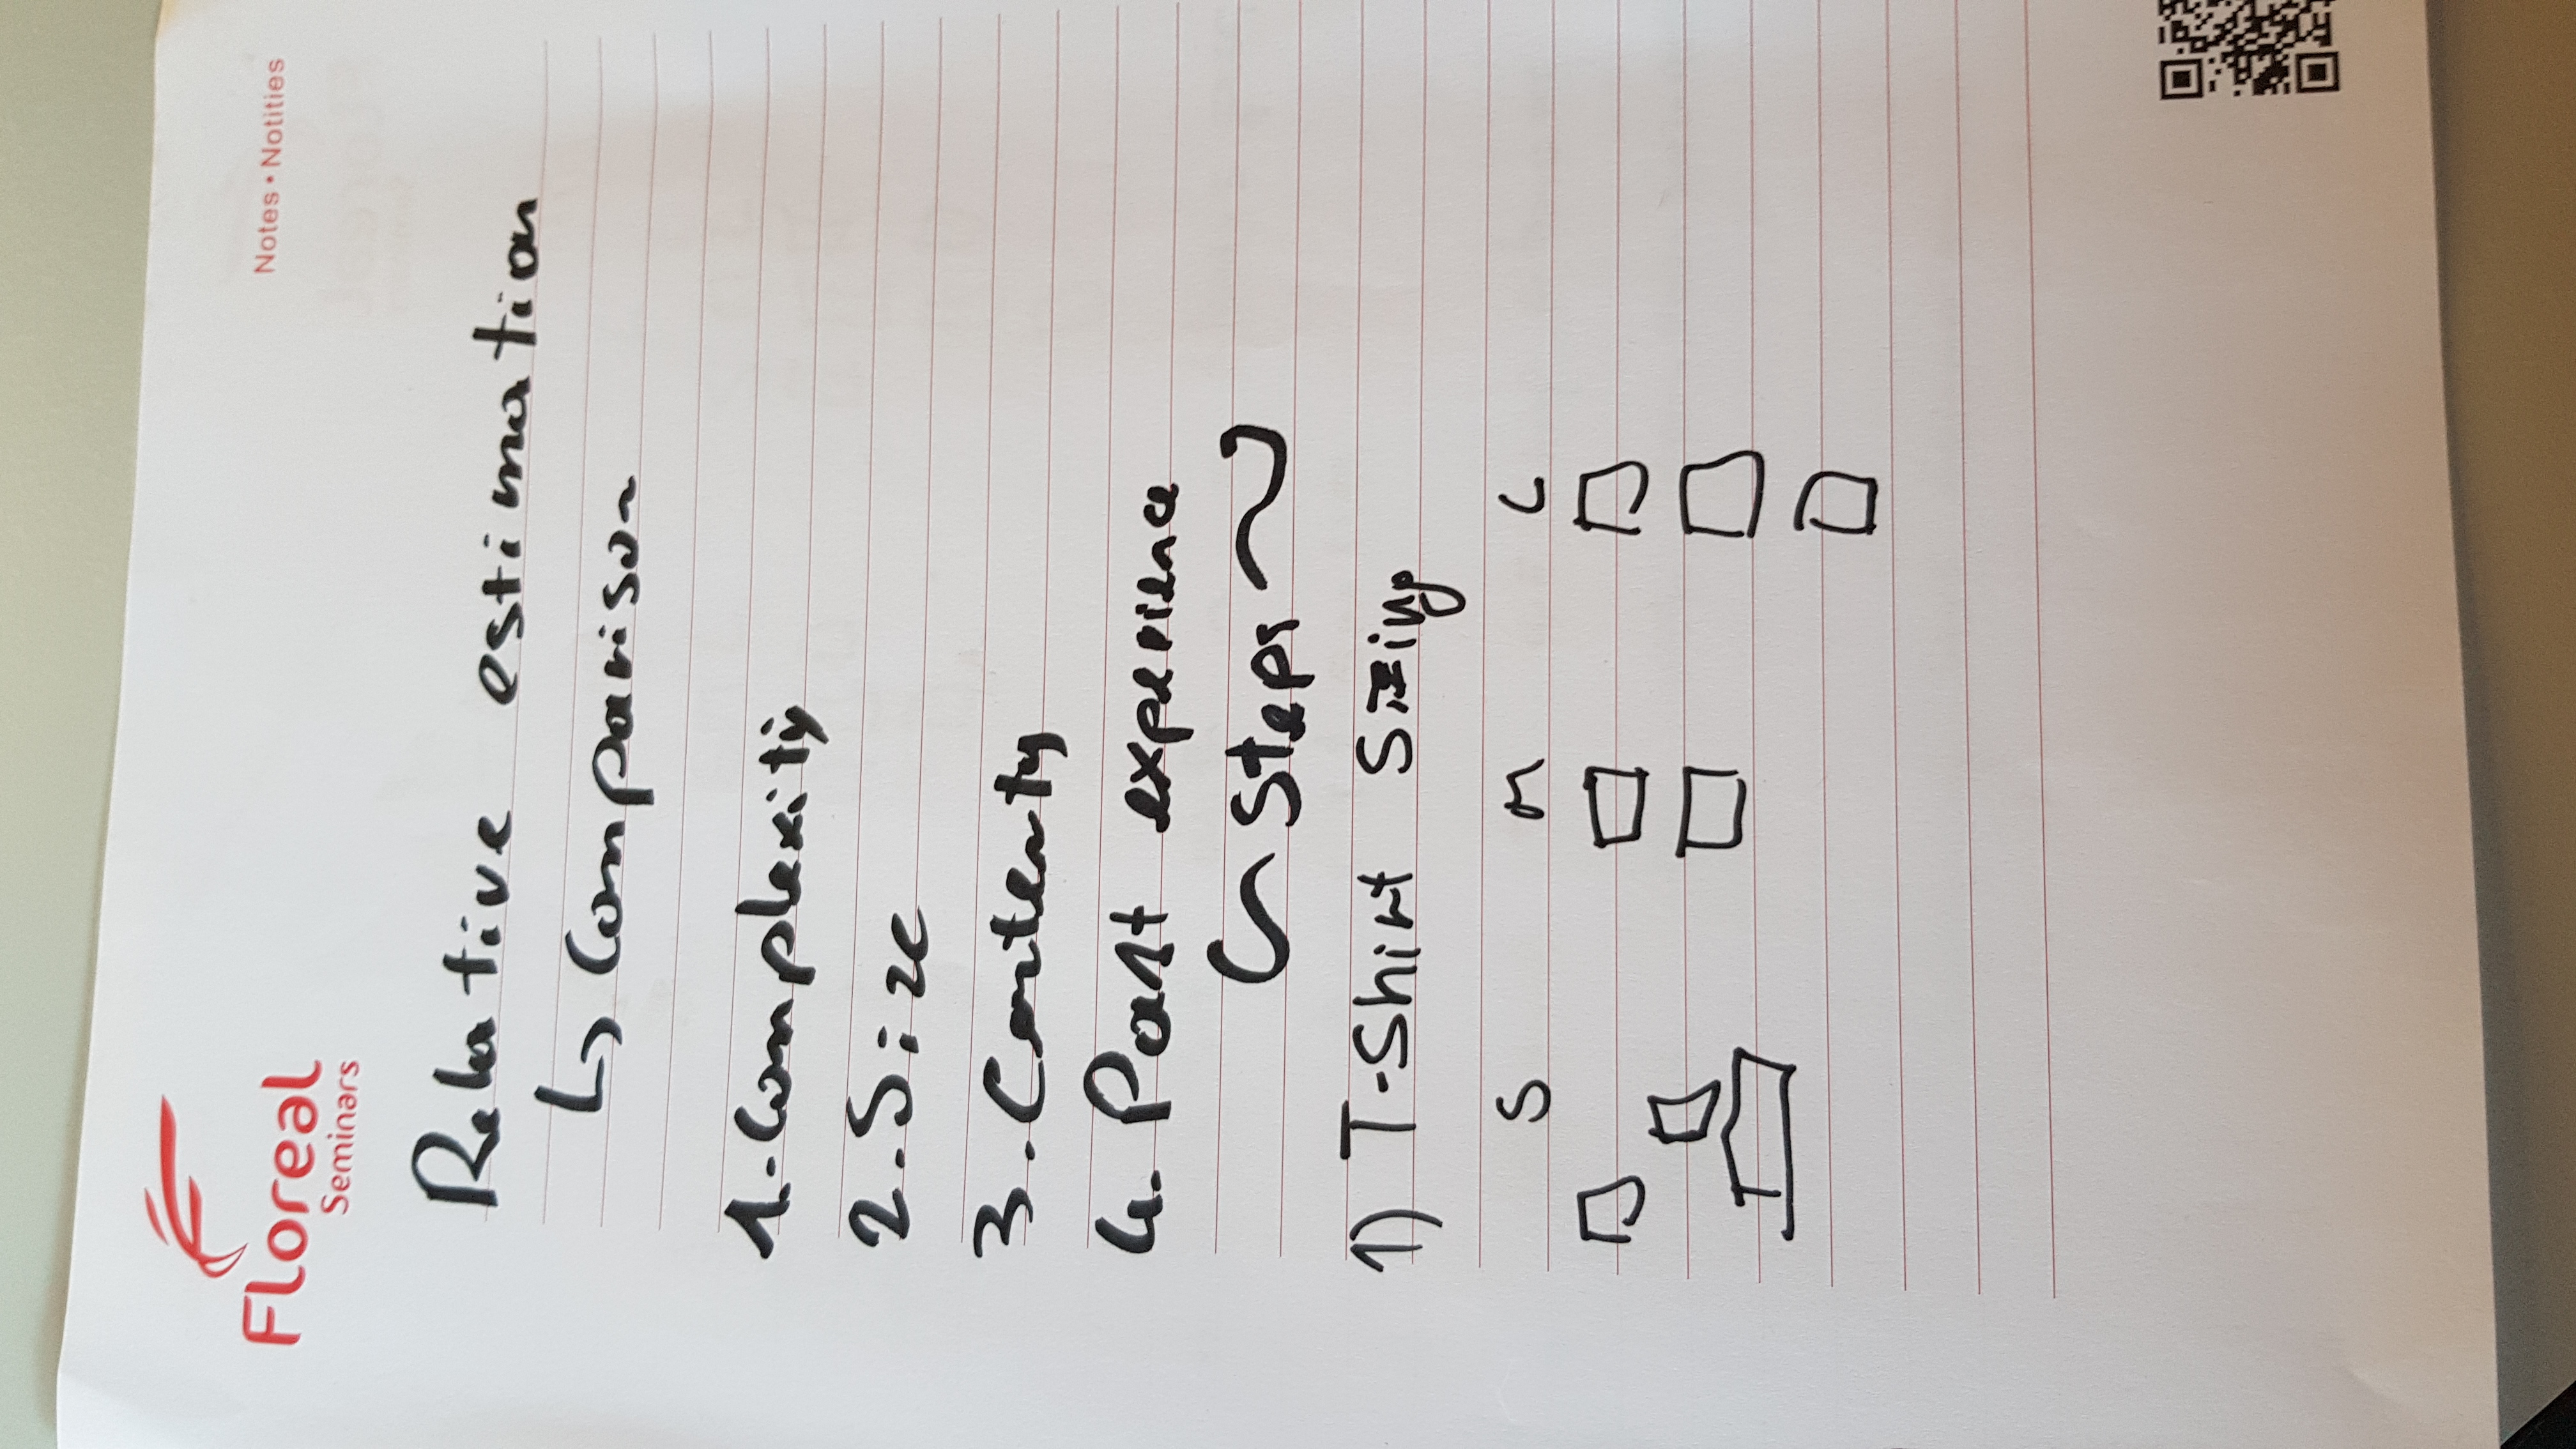 Floreal
Seminars
Notes • Notities
Relative estimation
↳ Comparison
1. Complexity
2. Size
3.
4. Past experience
Steps
1) T-Shirt Sizing
S M L